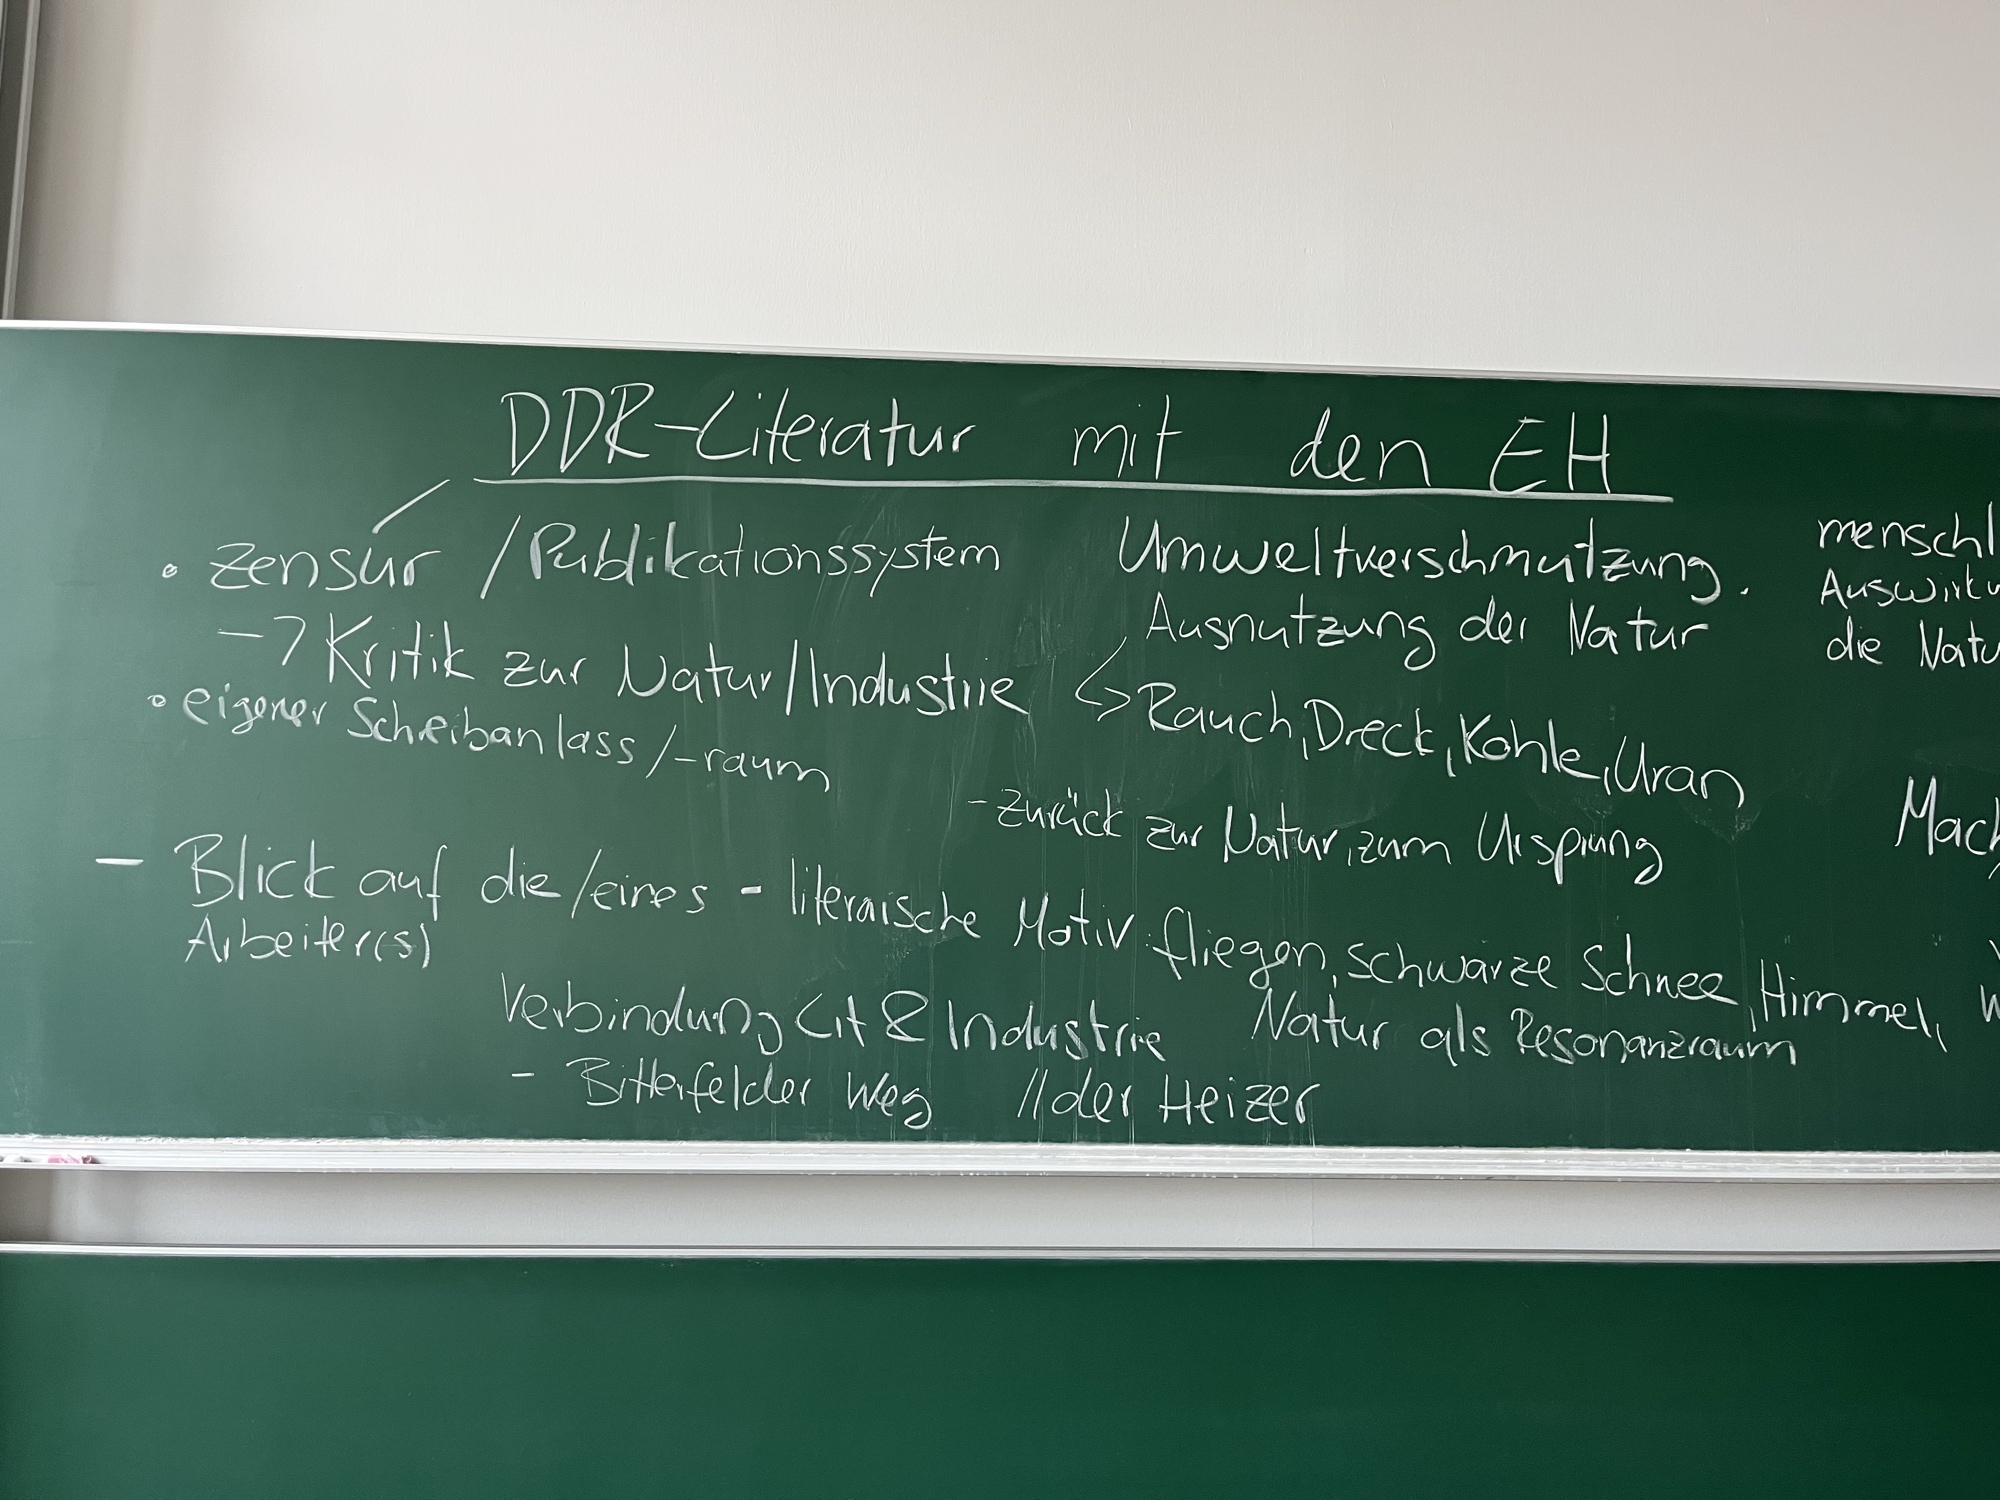 DDR-Literatur mit den EH
• Zensur / Publikationssystem
→ Kritik zur Natur/Industrie
• eigener Scheibanlass/-raum
Umweltverschmutzung.
Ausnutzung der Natur
↳ Rauch, Dreck, Kohle, Uran
- Zurück zur Natur, zum Ursprung
menschl
Auswirku
die Natu
Mach
- Blick auf die/eines
Arbeiter(s)
- literarische Motiv: fliegen, schwarze Schnee, Himmel, W
Verbindung Lit & Industrie
Natur als Resonanzraum
- Bitterfelder Weg // der Heizer